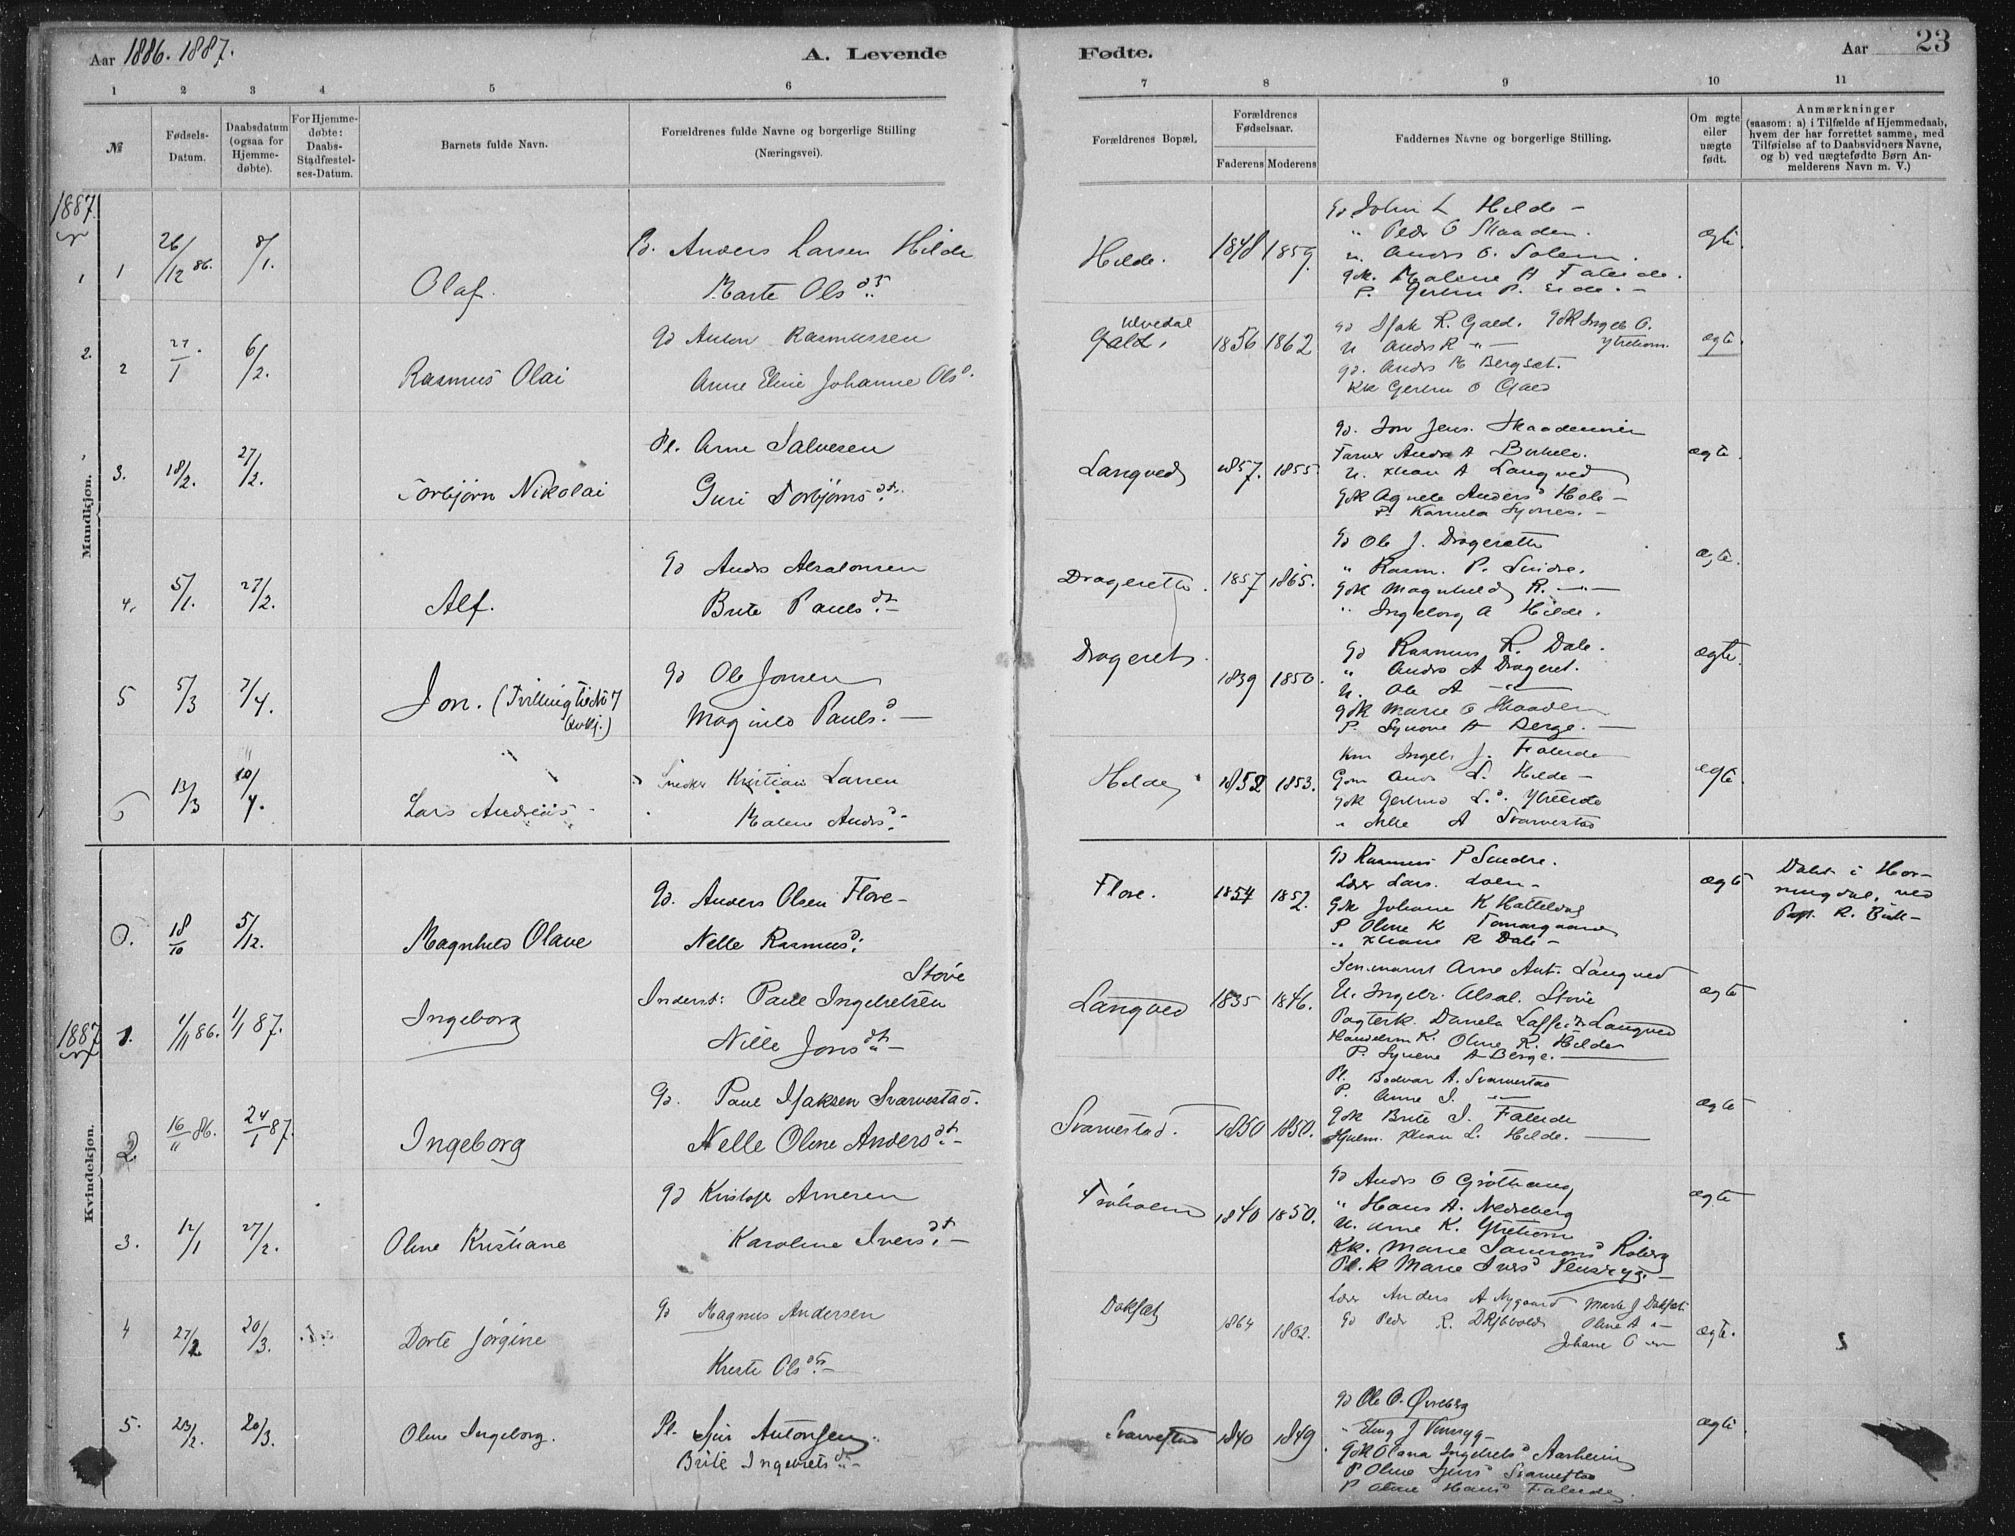 Aar 1886. 1887.
A. Levende
Fødte.
Aar
23
1 2 3 4 5 6 7 8 9 10 11
№
Fødsels-
Datum.
Daabsdatum
(ogsaa for
Hjemme-
døbte).
For Hjemme-
døbte:
Daabs-
Stadfæstel-
ses-Datum.
Barnets fulde Navn.
Forældrenes fulde Navne og borgerlige Stilling
(Næringsvei).
Forældrenes Bopæl.
Forældrenes
Fødselsaar.
Faderens Moderens
Faddernes Navne og borgerlige Stilling.
Om ægte
eller
uægte
født.
Anmærkninger
(saasom: a) i Tilfælde af Hjemmedaab,
hvem der har forrettet samme, med
Tilføielse af to Daabsvidners Navne,
og b) ved uægtefødte Børn An-
melderens Navn m. V.)
1887
Mandkjøn.
1 1 26/12 86. 8/1.
Olaf.
Anders Larsen Hilde
Marte Olsdt.
Hilde. 1848 1859.
Gd John L Hilde -
" Peder O Skaaden.
U. Anders O. Solem.
Gdk. Malene A Faleide.
P. Gertru P. Eide. -
ægte.
2. 2 27/1 6/2.
Rasmus Olai
Gd Anton Rasmussen
Anne Eline Johanne Olsd.
Ulvedal
Gald. 1856 1862
Gd Isak R. Gald. Gdk Ingeb O. Ytrehorn.
U Anders R -"-
Gd. Anders M Bergset.
Kk Gertru O Gald
ægte.
3. 18/2. 27/2.
Torbjørn Nikolai
Pl. Arne Salvesen
Guri Torbjørnsdt.
Langved 1857. 1855
Gd. Jon Jens. Skaademoen
Farver Anders A Birkelv.
U. Johan A Langved
Gdk Agnete Andersd Hole -
P. Kamila Synnes. -
ægte
4. 5/1. 27/2.
Alf.
Gd Anders Absalonsen
Brite Paulsdt. -
Drageretta. 1857 1865.
Gd Ole J. Drageretta
" Rasm. P. Sindre.
Gdk Magnhild R. -"-
" Ingeborg A Hilde.
ægte.
5 5/3 7/4.
Jon. (Tvilling til No 7
Kvkj.)
Gd Ole Jonsen
Magnild Paulsd. -
Drageret. 1839 1850.
Gd Rasmus R. Dale.
" Anders A Drageret.
U. Ole A -"-
Gdk Marie O Skaaden
P. Synnøve A Berge. -
ægte.
6 13/3 10/4.
Lars Andreas
Snedker Kristian Larsen
Malene Andersd. -
Hilde 1852 1853.
Km Ingeb. J. Faleide
Gm Anders L. Hilde -
Gdk Gertrud L.d. Ytreeide
" Nille A Svarvestad
ægte.
Kvindekjøn.
0. 18/10 5/12.
Magnhild Olave
Gd. Anders Olsen Flore -
Nelle Rasmusd.
Flore. 1854 1852.
Gd Rasmus P Sindre.
Lærer Lars. Loen -
Gdk Johane K Hattelvog
P Oline K Tomasgaard
" Johane R Dale -
ægte
Døbt i Hor-
ningdal, ved
Psp. R. Bull -
1887
1. 1/11 86. 1/1 87.
Ingeborg
Støve
Inderst: Paul Ingebretsen
Nille Jonsdt. -
Langved 1835 1846.
Sønnen Arne Ant. Langved
U. Ingebr. Absal. Støve
Pagterk. Danela Langved
Handelsm K. Oline R. Hilde
P. Synnøve A Berge. -
ægte
2. 16/11 86. 24/1 87.
Ingeborg
Gd. Paul Isaksen Svarvestad.
Nelle Oline Andersdt. -
Svarvestad. 1850 1850.
Pl. Bodvar A. Svarvestad
P. Anne I. -"-
Gdk Brite I. Faleide
Hjulm. Johan L. Hilde. -
ægte
3. 12/1 27/2.
Oline Kristiane
Gd Kristofer Arnesen
Karoline Iversdt. -
Frøholm 1840 1850.
Gd Anders O Grøthaug
" Hans A. Nedreberg
U. Arne K. Ytrehorn
Kk. Marie Samsonsd Røberg
Pl.k Marie Iversd Vensryg. -
ægte
4 27/2 20/3.
Dorte Jørgine
Gd Magnus Andersen
Kriste Olsdt. -
Dokset 1864 1862.
Lærer Anders A Nygaard Marte J Dokset
Gd Peder R. Oline A -"-
Johane O -"-
ægte.
5. 23/2. 20/3.
Oline Ingeborg.
Pl. Sjur Antonsen.
Brite Ingebretsdt. -
Svarvestad 1840 1849.
Gd Ole O. Øvreberg
" Eling J Vensryg -
Gdk Olana Ingebretsd Aarheim
P Oline Jensd Svarvestad
P Oline Hansd Faleide.
ægte